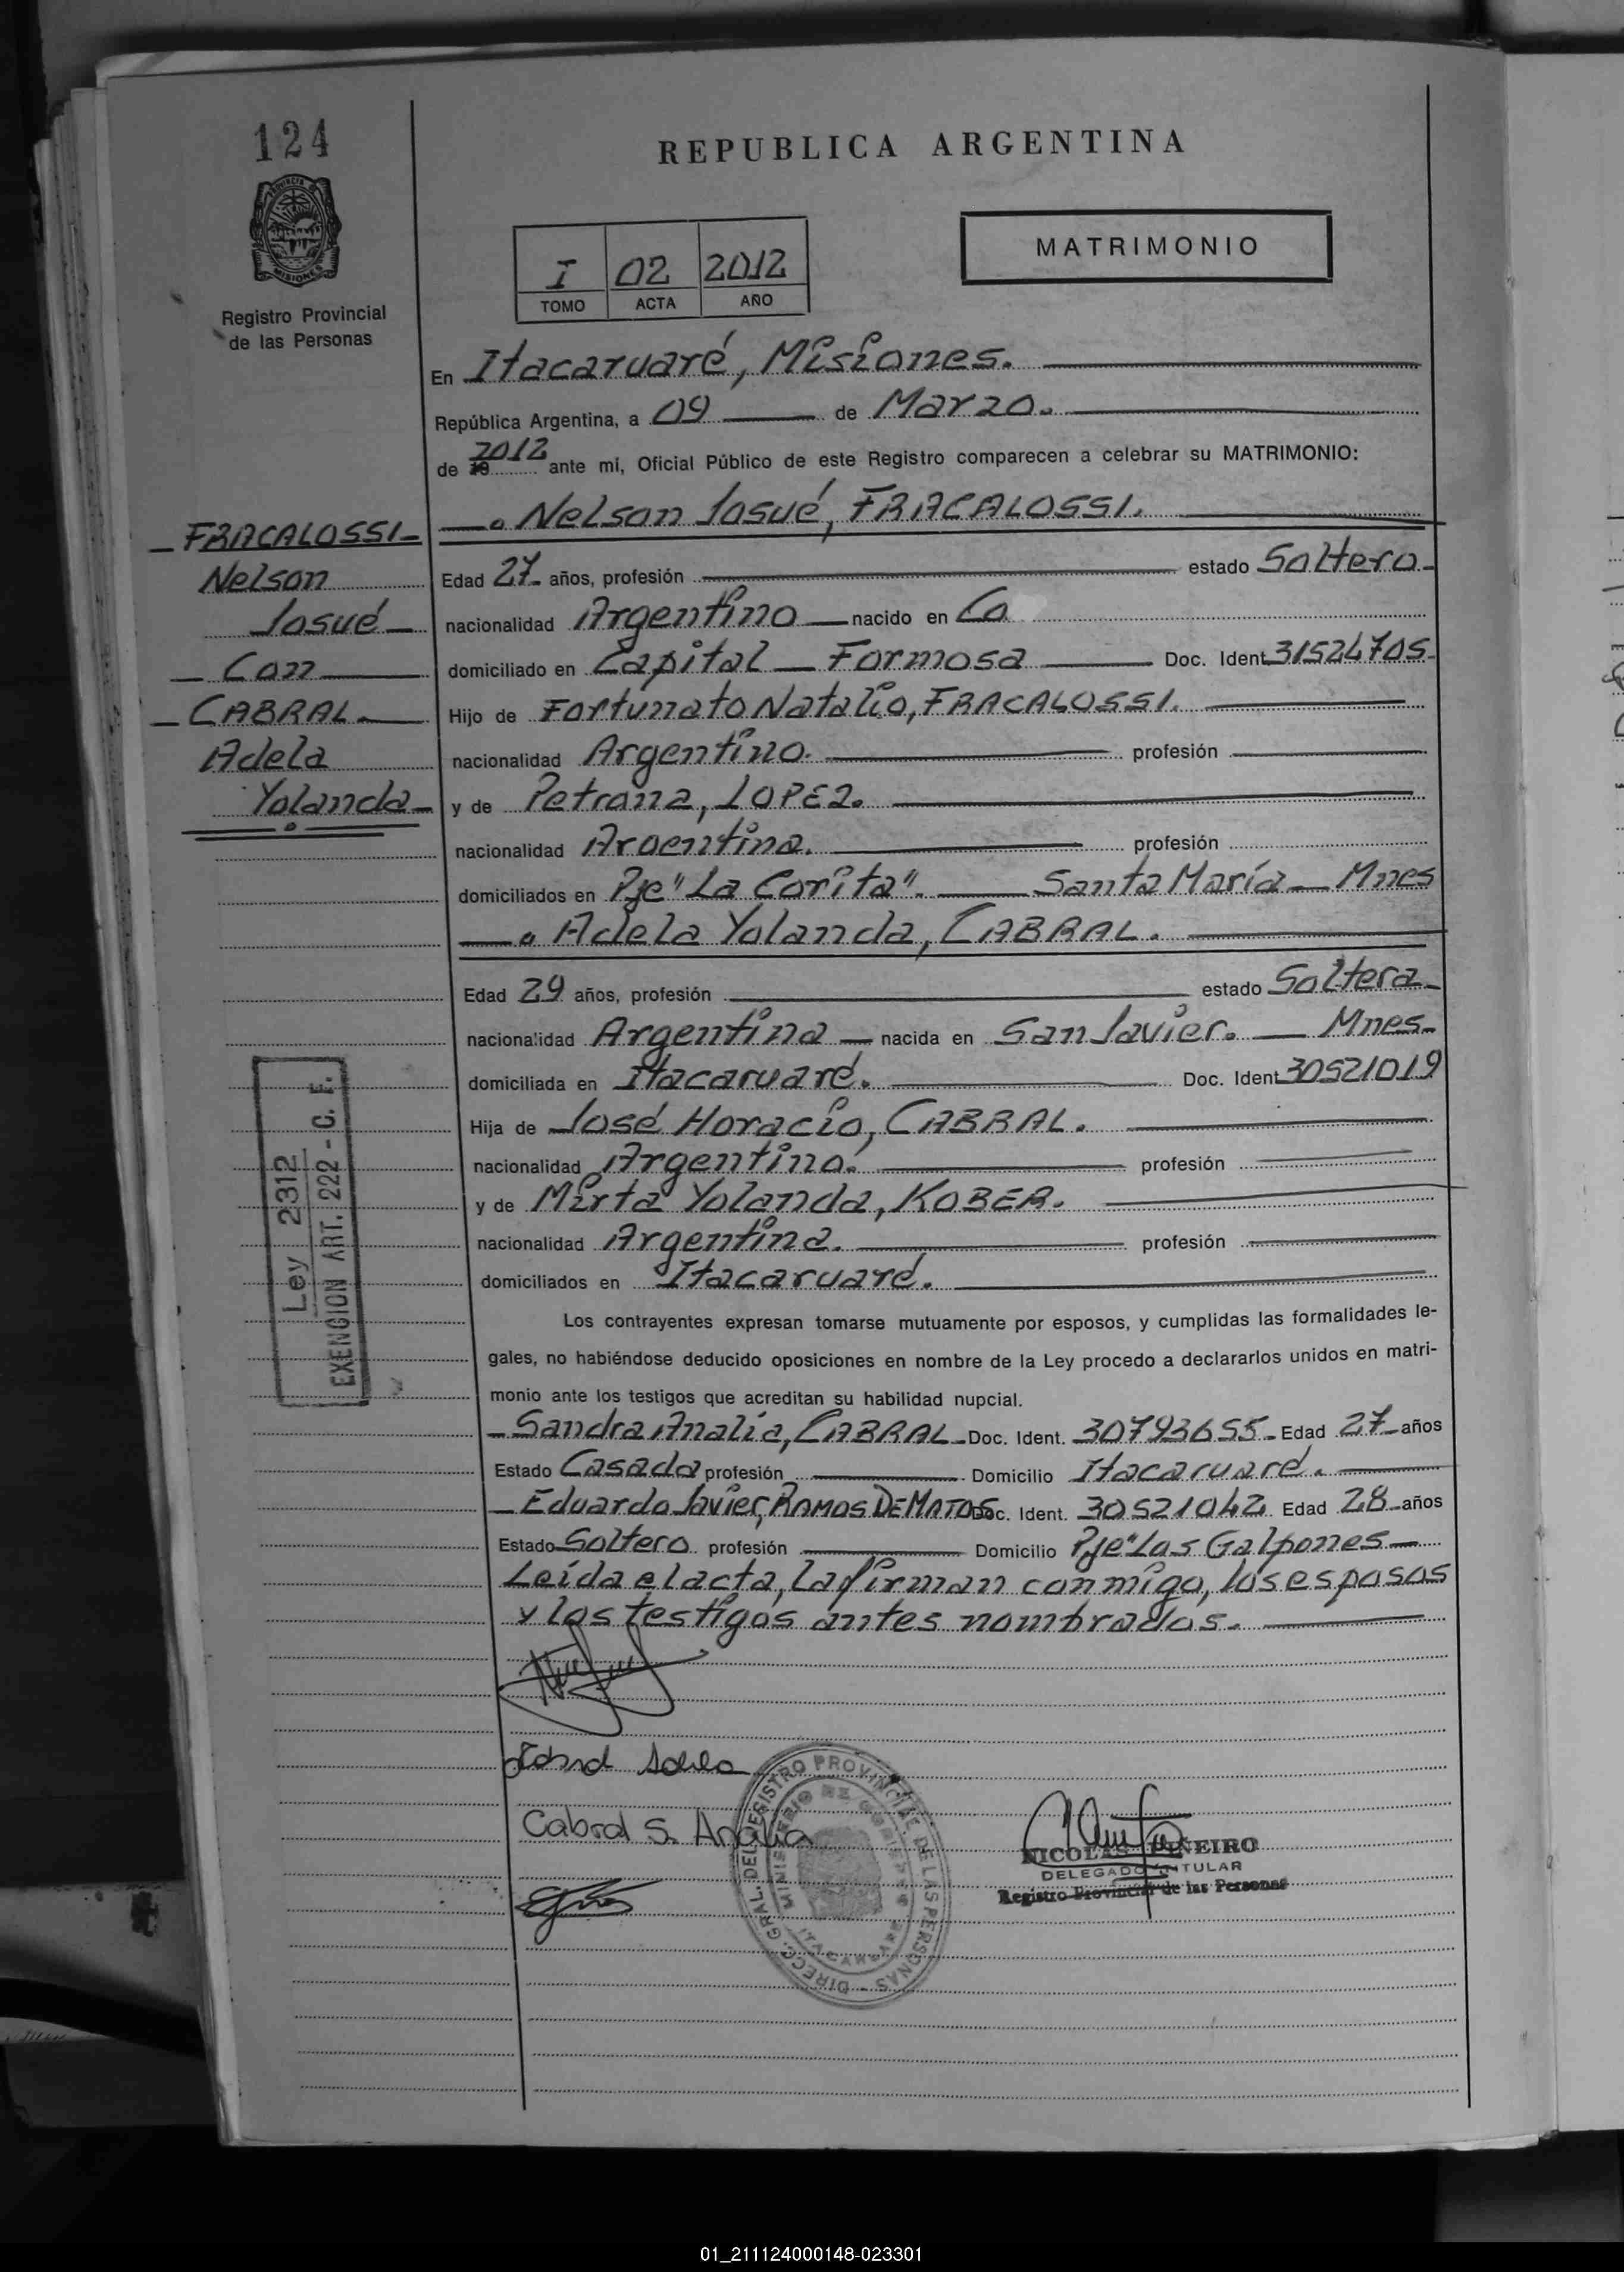 124
REPUBLICA ARGENTINA
PROVINCIA DE MISIONES
MATRIMONIO
I 02 2012
TOMO ACTA AÑO
Registro Provincial
de las Personas
En Itacaruaré, Misiones.
República Argentina, a 09 de Marzo.
de 2012 ante mi, Oficial Público de este Registro comparecen a celebrar su MATRIMONIO:
Nelson Josué, FRACALOSSI.
FRACALOSSI
Nelson
Josué
Con
CABRAL.
Adela
Yolanda
Edad 27 años, profesión estado Soltero
nacionalidad Argentino nacido en Co
domiciliado en Capital Formosa Doc. Ident 31524705
Hijo de Fortunato Natalio, FRACALOSSI.
nacionalidad Argentino. profesión
y de Petrona, LOPEZ.
nacionalidad Argentina. profesión
domiciliados en Pje "La Corita". Santa María Mnes
Adela Yolanda, CABRAL.
Edad 29 años, profesión estado Soltera
nacionalidad Argentina nacida en San Javier. Mnes
domiciliada en Itacaruaré. Doc. Ident 30521019
Hija de José Horacio, CABRAL.
nacionalidad Argentino. profesión
y de Mirta Yolanda, KOBER.
nacionalidad Argentina. profesión
domiciliados en Itacaruaré.
Ley 2312
EXENCION ART. 222 - C. F.
Los contrayentes expresan tomarse mutuamente por esposos, y cumplidas las formalidades le-
gales, no habiéndose deducido oposiciones en nombre de la Ley procedo a declararlos unidos en matri-
monio ante los testigos que acreditan su habilidad nupcial.
Sandra Analia, CABRAL Doc. Ident. 30793655 Edad 27 años
Estado Casada profesión Domicilio Itacaruaré.
Eduardo Javier, RAMOS DE MATOS Doc. Ident. 30521042 Edad 28 años
Estado Soltero profesión Domicilio Pje "Los Galpones
Leída el acta, la firman conmigo, los esposos
y los testigos antes nombrados.
Cabral Adela
Cabral S. Analia
DIRECC. GRAL. DEL REGISTRO PROVINCIAL DE LAS PERSONAS
MINISTERIO DE GOBIERNO
ITACARUARE
NICOLAS PIÑEIRO
DELEGADO TITULAR
Registro Provincial de las Personas
01_211124000148-023301